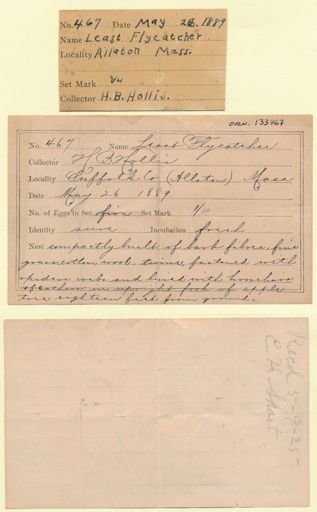 No. 467 Date May 26. 1889
Name Least Flycatcher.
Locality Allston Mass.
Set Mark
Collector H. B. Hollis.
ORN. 133767
No. 467 Name Least Flycatcher
Collector H B Hollis
Locality Suffolk Co (Allston) Mass
Date May 26 1889
No. of Eggs in Set five Set Mark
Identity sure Incubation fresh
Nest compactly built of bark fibre, fine
grass, cotton, wool, twine, fastened with
spider webs and lined with horsehair
& feathers in upright fork of apple
tree eighteen feet from ground.
Recd 5-9-25-
C. H.